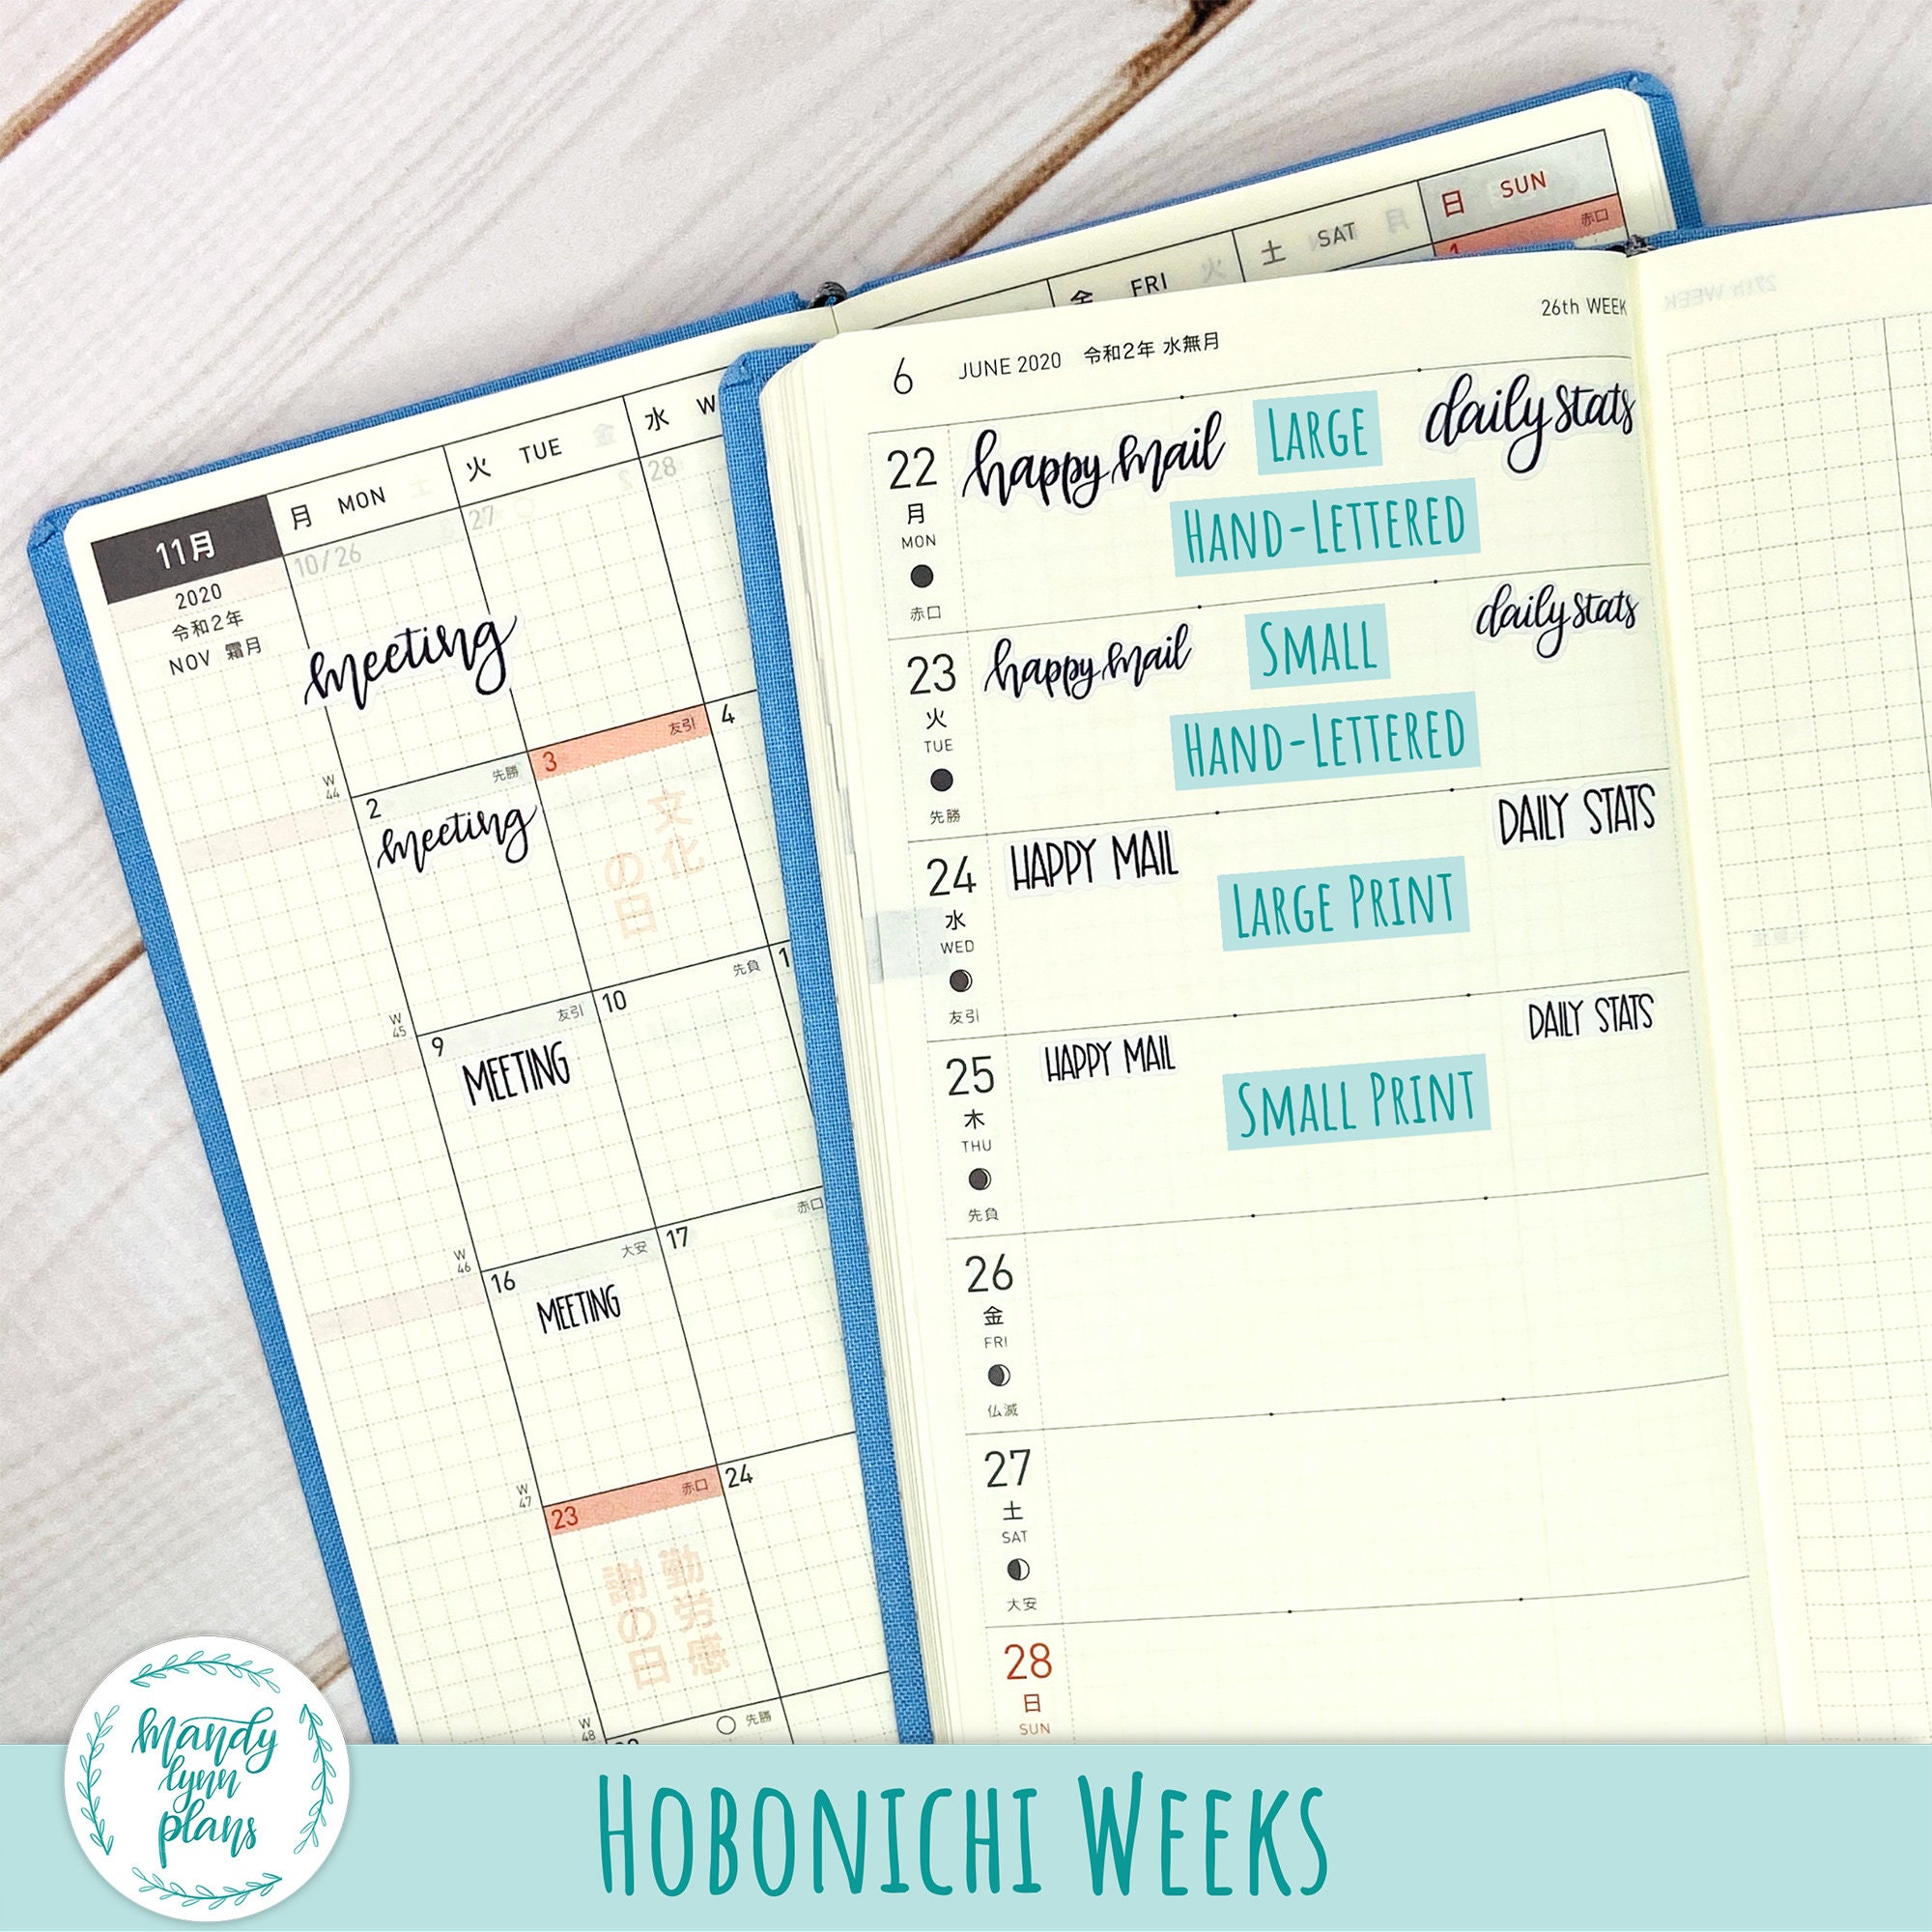 日 SUN
赤口
1
土 SAT
金 FRI
水 W
火 TUE
月 MON
11月
2020
令和2年
NOV 霜月
10/26
27
28
meeting
W
44
2
先勝
3
友引
4
meeting
文化
の日
W
45
9
友引
10
先負
1
MEETING
W
46
16
大安
17
赤口
MEETING
W
47
23
赤口
24
勤労感
謝の日
W
48
先勝
6 JUNE 2020 令和2年 水無月
26th WEEK
27th WEEK
22
月
MON
赤口
happy mail
LARGE
daily stats
HAND-LETTERED
23
火
TUE
先勝
happy mail
SMALL
daily stats
HAND-LETTERED
24
水
WED
友引
HAPPY MAIL
DAILY STATS
LARGE PRINT
25
木
THU
先負
HAPPY MAIL
DAILY STATS
SMALL PRINT
26
金
FRI
仏滅
27
土
SAT
大安
28
日
SUN
mandy
lynn
plans
HOBONICHI WEEKS